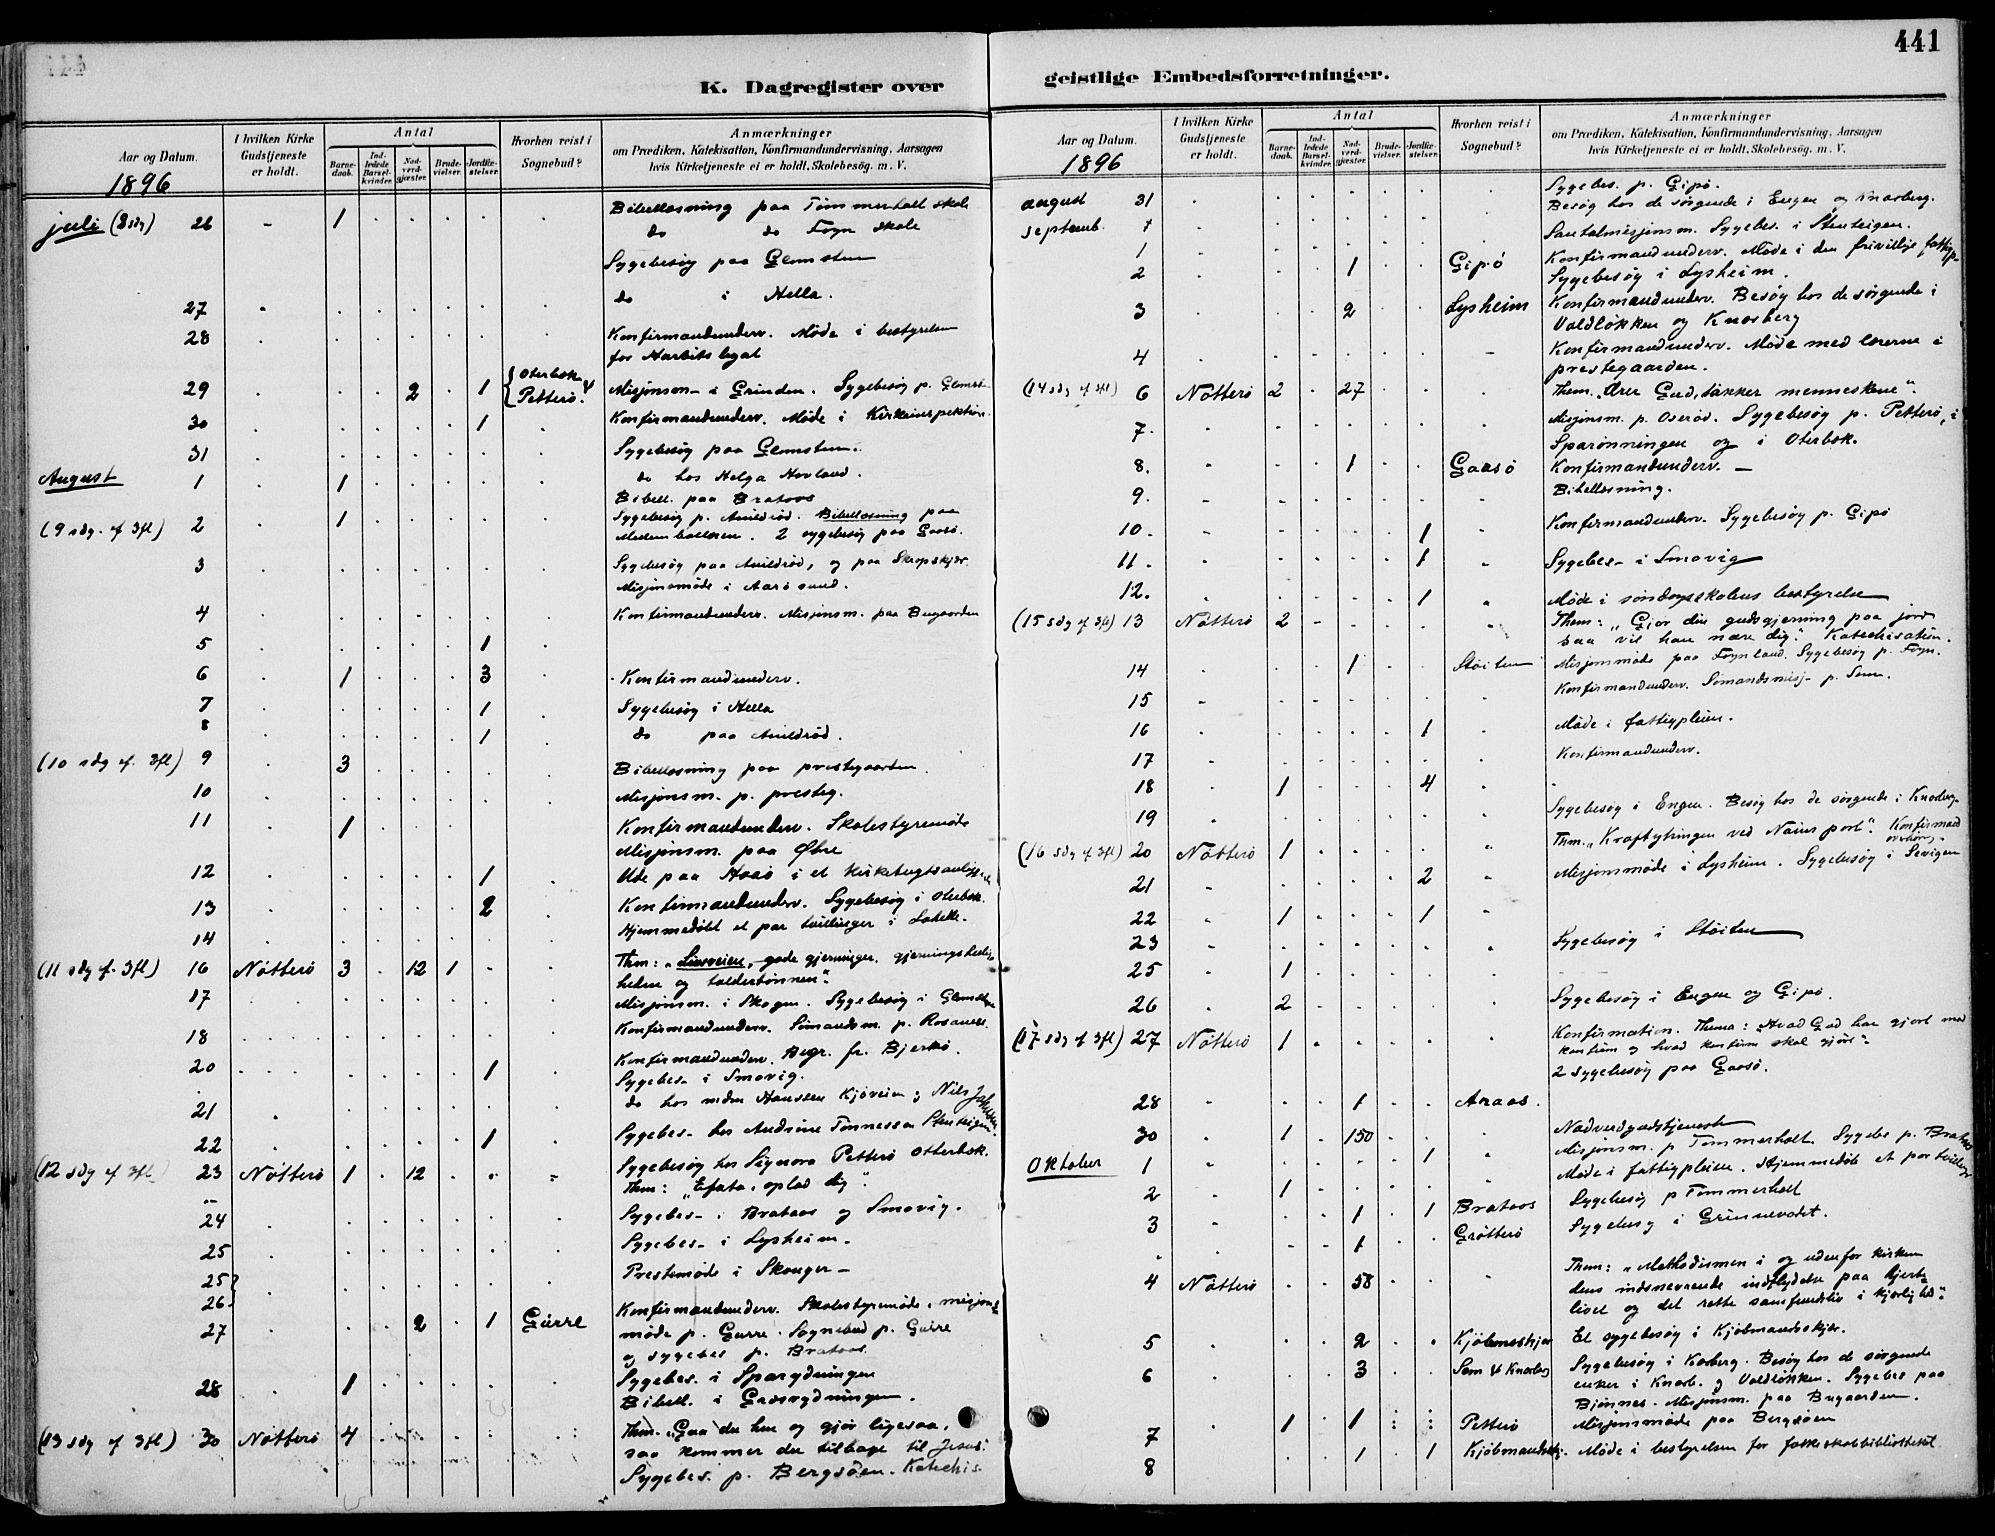 441
K. Dagregister over
geistlige Embedsforretninger.
Aar og Datum.
I hvilken Kirke Gudstjeneste er holdt.
Antal
Barnedaab.
Indledede Barselkvinder.
Nadverdgjæster.
Brudevielser.
Jordfæstelser.
Hvorhen reist i Sognebud?
Anmærkninger
om Prædiken, Katekisation, Konfirmandundervisning, Aarsagen
hvis Kirketjeneste ei er holdt. Skolebesög. m. V.
1896
juli (8 sdg) 26 - 1 Bibellæsning paa Tömmerholt skole
do do Föyn skole
Sygebesög paa Glomsten
27 do i Hella.
28 Konfirmandunderv. Möde i bestyrelsen
for Aarbits legat
29 2 1 Oterbæk & Petterö. Misjonsm. i Grinden. Sygebesög p. Glomst
30 1 Konfirmandunderv. Möde i Kirkeinspektion.
31 Sygebesög paa Glomsten.
August 1 1 do hos Helga Hovland.
Bibell. paa Brataas
(9 sdg. ef 3fl) 2 1 Sygebesög p. Amildröd. Bibellæsning paa
2 sygebesög paa Gaasö.
3 Sygebesög paa Amildröd, og paa Skropskjær
Misjonsmöde i Aarösund.
4 Konfirmandunderv. Misjonsm. paa Bugaarden
5 1
6 1 3 Konfirmandunderv.
7 1 Sygebesög i Hella
8 1 do paa Amildröd.
(10 sdg ef. 3fl) 9 3 Bibellæsning paa prestegaarden.
10 Misjonsm. p. presteg.
11 1 Konfirmandunderv. Skolestyremöde
Misjonsm. paa Öbre
12 1 Ude paa Aaas i et Kirketugts
13 2 Konfirmandunderv. Sygebesög i Oterbæk.
14 Hjemmedöbt et par tvillinger i
(11 sdg ef. 3fl) 16 Nötterö 3 12 1 Thm: „Livsveien, gode gjerninger, gjerningshellig
heden og tolderbönnen".
17 Misjonsm. i Skogen. Sygebesög i Glomsten
18 Konfirmandunderv. Sömandsm. p. Rosanes.
20 1 Konfirmandunderv. Begr. fr. Bjerkö.
Sygebes. i Smovig.
21 do hos Hanssen Kjöveien og Nils Jakobsen
22 1 Sygebes. hos Andrine Tönnessen Stenteigen
(12 sdg ef 3fl) 23 Nötterö 1 12 Sygebesög hos Signora Petterö Otterbæk.
Thm: „Efata, oplad dig".
24 Sygebes. i Brataas og Smovig.
25 Sygebes. i Lysheim.
25 26 Prestemöde i Skouger
27 2 1 Gürre Konfirmandunderv. Skolestyremöde, misjons
möde p. Gurre. Sognebud p. Gürre
og sygebes p. Brataas.
28 1 Sygebes. i Sparydningen
Bibell. i Græsrydningen.
(13 sdg ef 3fl) 30 Nötterö 4 Thm. „Gaa du hen og gjör ligesaa,
saa kommer du tilbage til Jesus."
Sygebes. p. Bergsöen. Katechis.
Aar og Datum.
I hvilken Kirke Gudstjeneste er holdt.
Antal
Barnedaab.
Indledede Barselkvinder.
Nadverdgjæster.
Brudevielser.
Jordfæstelser.
Hvorhen reist i Sognebud?
Anmærkninger
om Prædiken, Katekisation, Konfirmandundervisning, Aarsagen
hvis Kirketjeneste ei er holdt. Skolebesög. m. V.
1896
august 31 Sygebes. p. Gipö.
Besög hos de sörgende i Engen og Knarberg.
septemb. 1 Santalmisjonsm. Sygebes. i Stenteigen.
1 Konfirmandunderv. Möde i den frivillige fattigp-
2 1 Gipö Sygebesög i Lysheim.
3 2 Lysheim Konfirmandunderv. Besög hos de sörgende i
Voldlökken og Knarberg
4 Konfirmandunderv. Möde med lærerne i
prestegaarden.
(14 sdg ef 3fl) 6 Nötterö 2 27 Them. „Ærer Gud, takker menneskene".
7. Misjonsm. p. Oseröd. Sygebesög p. Petterö, i
Sparönningen og i Oterbæk.
8. 1 Gaasö Konfirmandunderv.
9. Bibellæsning.
10. 1 Konfirmandunderv. Sygebesög p. Gipö
11. 1 Sygebes. i Smovig
12. 1 Möde i söndagsskolens bestyrelse
(15 sdg ef 3fl) 13 Nötterö 2 Thm: „Gjör din gudsgjerning paa jord
saa vil han nære dig". Katechisation.
14 1 Stöiten Misjonsmöde paa Föynland. Sygebesög p. Föyn.
15 Konfirmandunderv. Sömandsmisj. p. Sem.
16 1 Möde i fattigpleien.
17 Konfirmandunderv.
18 1 4
19 Sygebesög i Engen. Besög hos de sörgende i Knarberg.
(16 sdg ef 3fl) 20 Nötterö 1 Thm. „Kraftytringen ved Nains port". Konfirmand overhöring.
21 2 Misjonsmöde i Lysheim. Sygebesög i Sevigen
22 1 1
23 Sygebesög i Stöiten
25 1
26 2 Sygebesög i Engen og Gipö.
(17 sdg ef 3fl) 27 Nötterö 1 Konfirmation. Thema: „Hvad Gud har gjort med
konfirm og hvad konfirm skal gjöre".
2 sygebesög paa Gaasö.
28 1 Araas.
30 1 150 Nadverdgudstjeneste
Misjonsm. p. Tömmerholt. Sygebe p. Brataas
Oktober 1 1 Möde i fattigpleien. Hjemmedöb et par tvillinger
2 1 Sygebesög p Tömmerholt
3 1 1 Brataas Sygebesög i Grinnevadet.
1 Grötterö
4 Nötterö 58 Thm: „Methodismen i og udenfor kirken
dens indsnevrende indflydelse paa hjerte
livet og det rette samfundsliv i kjærlighed".
5 2 Kjöbmskjær Et sygebesög i Kjöbmandskjær.
6 3 Sem & Knarberg Sygebesög i Korberg. Besög hos de sörgende
enker i Knarb. og Voldlökken. Sygebes paa
Bjönnes. Misjonsm. paa Bugaarden.
7 1 1 Petterö Misjonsmöde paa Bergsöen
8 1 1 Kjöbmandskj. Möde i bestyrelsen for folkeskolebibliotheket